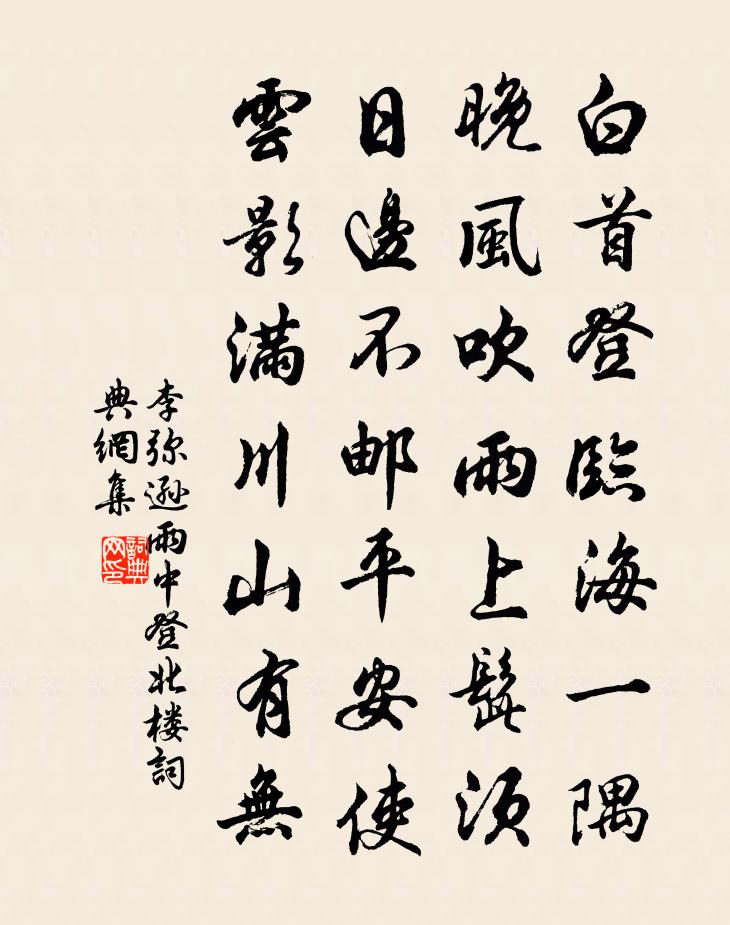 白首登臨海一隅
晚風吹雨上髭須
日邊不邮平安使
雲影滿川山有無
李弥逊雨中登北楼詞
典網集
詞典网印